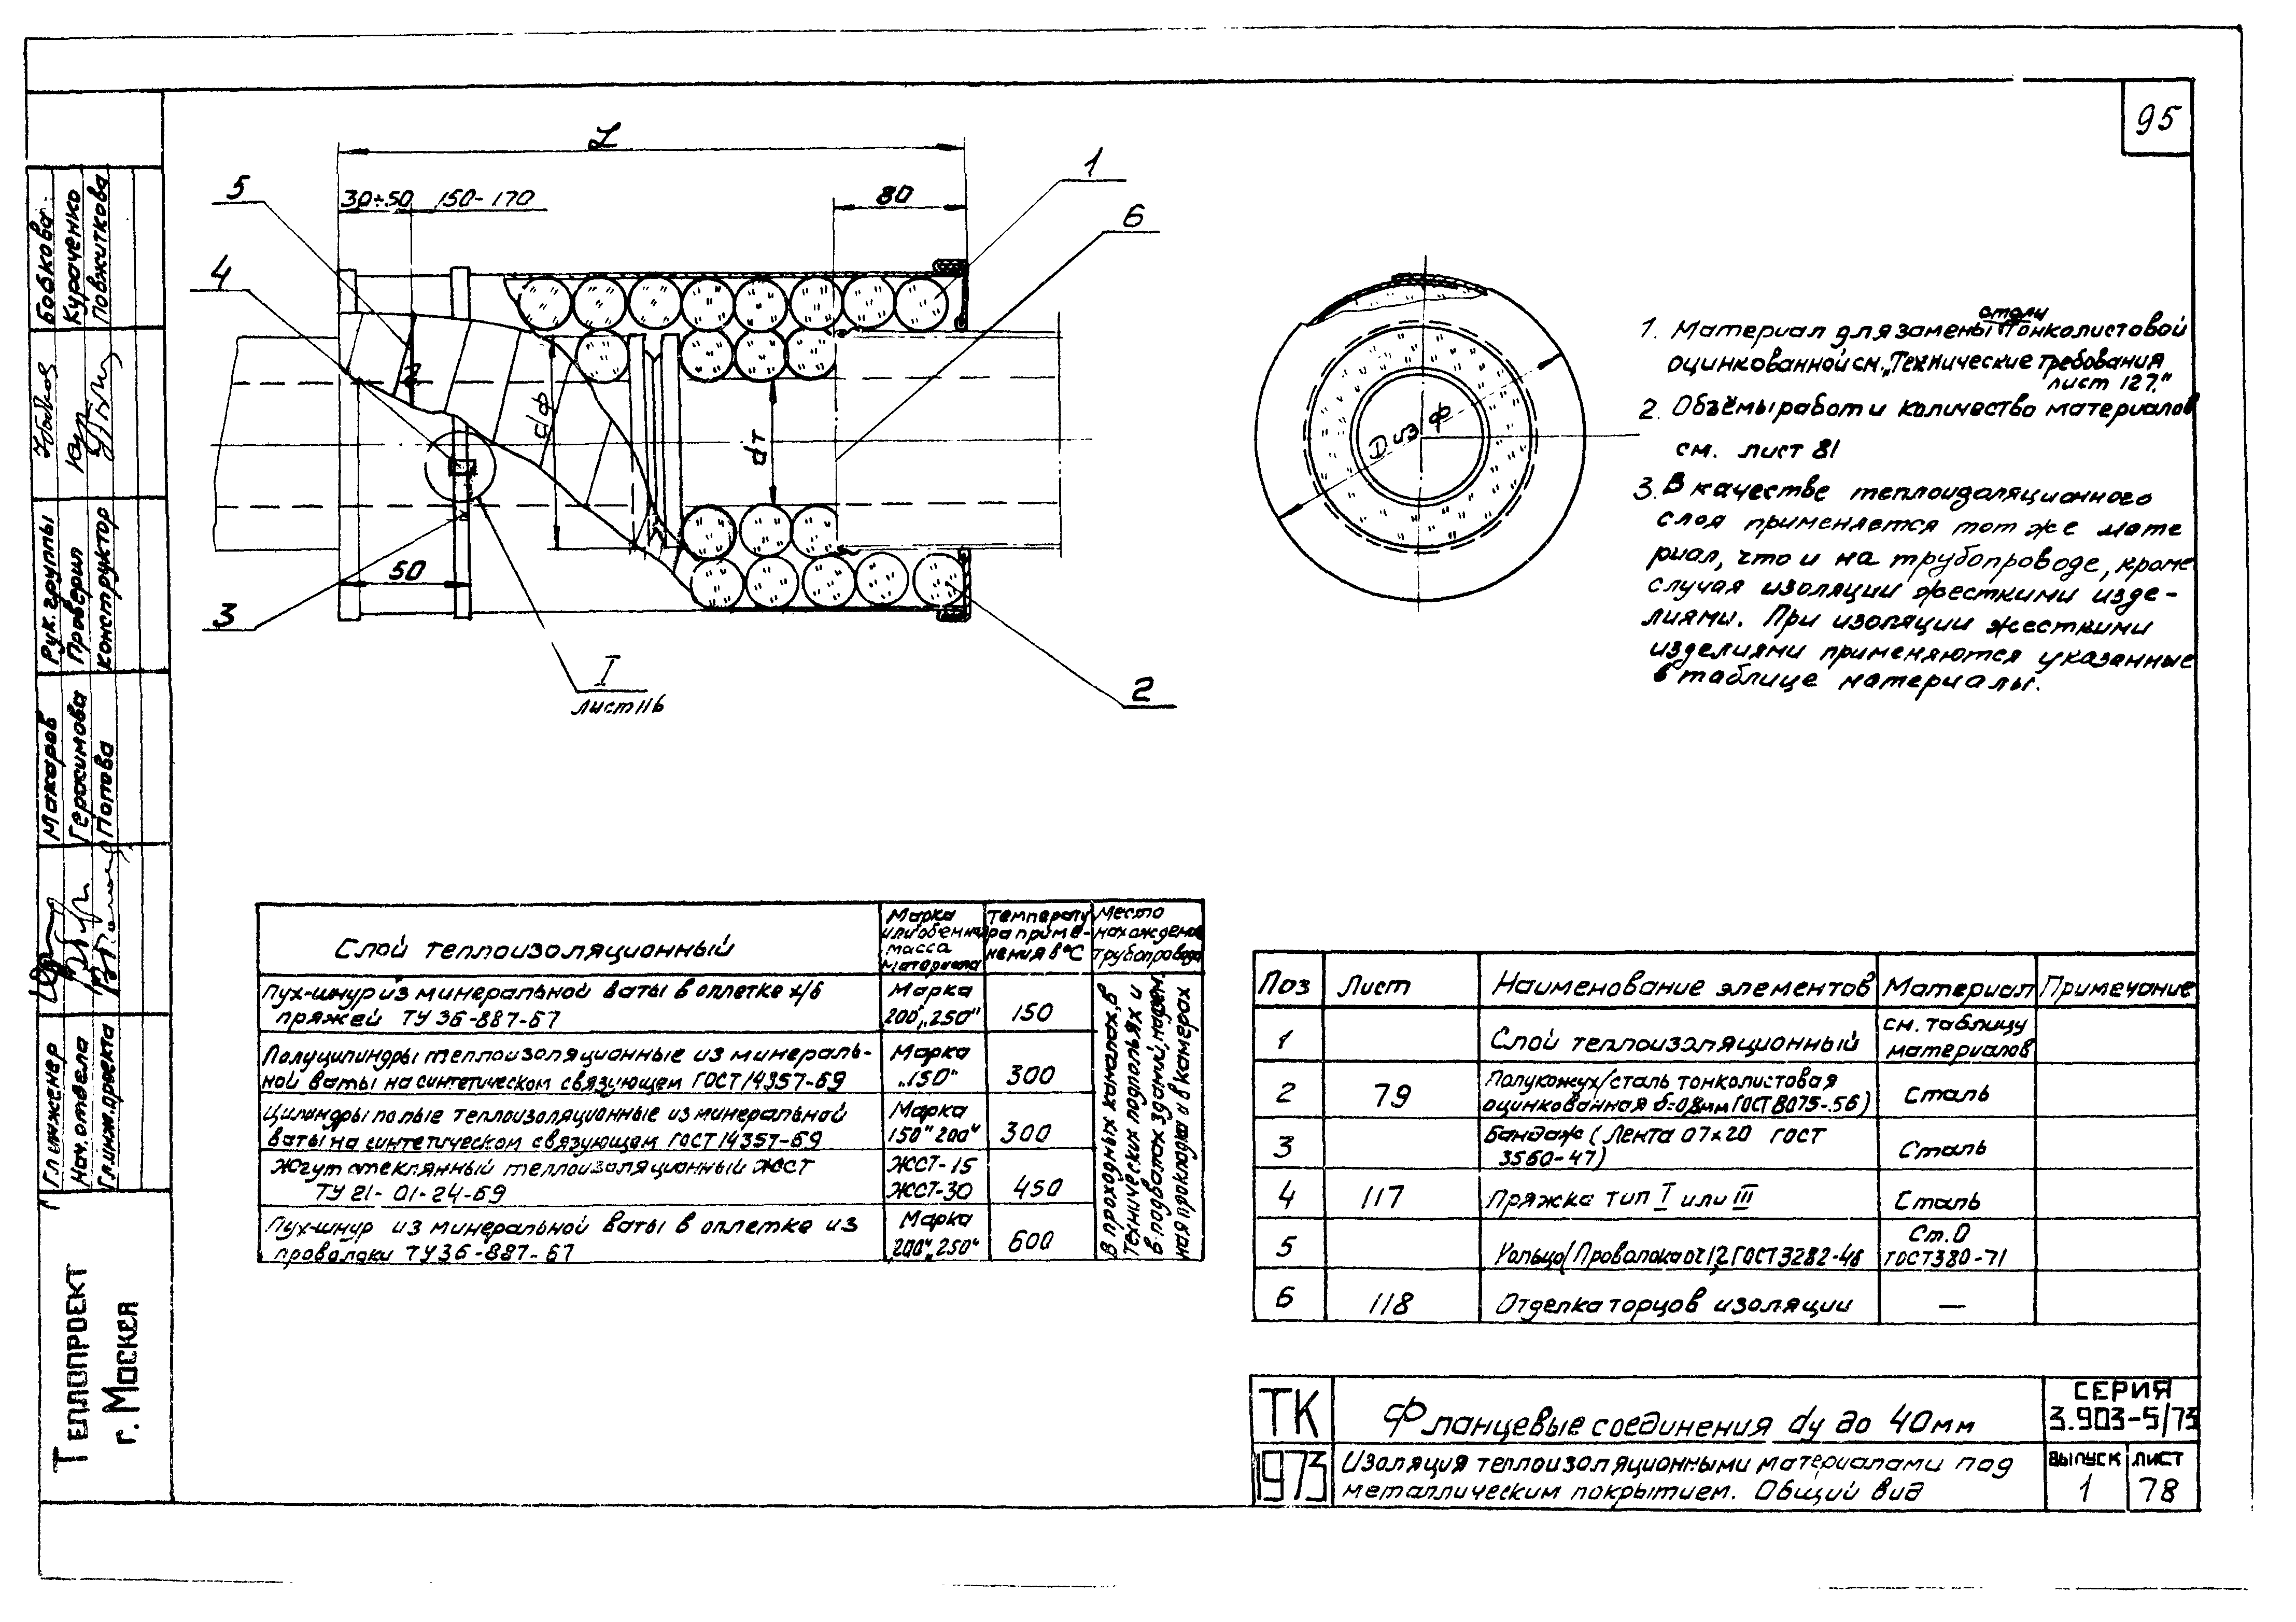 95
L
30÷50
150-170
80
5
4
1
6
dф
dт
50
3
I
лист 116
2
D из ф
1. Материал для замены стали тонколистовой
оцинкованной см. „Технические требования
лист 127."
2. Объёмы работ и количество материалов
см. лист 81
3. В качестве теплоизоляционного
слоя применяется тот же мате
риал, что и на трубопроводе, кроме
случая изоляции жесткими изде-
лиями. При изоляции жесткими
изделиями применяются указанные
в таблице материалы.
Слой теплоизоляционный
Марка или объемная масса материала
Температура применения в °С
Место нахождение трубопровода
Пух-шнур из минеральной ваты в оплетке х/б
пряжей ТУ 36-887-67
Марка
200„ 250"
150
Полуцилиндры теплоизоляционные из минераль-
ной ваты на синтетическом связующем ГОСТ 14357-69
Марка
„150"
300
Цилиндры полые теплоизоляционные из минеральной
ваты на синтетическом связующем ГОСТ 14357-69
Марка
150" 200"
300
Жгут стеклянный теплоизоляционный ЖСТ
ТУ 21-01-24-69
ЖСТ-15
ЖСТ-30
450
Пух-шнур из минеральной ваты в оплетке из
проволоки ТУ 36-887-67
Марка
„200", 250"
600
В проходных каналах, в
технических подпольях и
в подвалах зданий, надзем.
ная прокладка и в камерах
Поз Лист Наименование элементов Материал Примечание
1 Слой теплоизоляционный см. таблицу материалов
2 79 Полукожух/сталь тонколистовая
оцинкованная б=0,8мм ГОСТ 8075-56) Сталь
3 Бандаж (Лента 07х20 ГОСТ
3560-47) Сталь
4 117 Пряжка тип I или III Сталь
5 Кольцо(Проволока от 1,2 ГОСТ 3282-46 Ст.0
ГОСТ 380-71
6 118 Отделка торцов изоляции —
ТК
1973
Фланцевые соединения dу до 40мм
Изоляция теплоизоляционными материалами под
металлическим покрытием. Общий вид
СЕРИЯ
3.903-5/73
ВЫПУСК ЛИСТ
1 78
Бобкова
Кураченко
Повжиткова
Рук. группы
Проверил
Конструктор
Макаров
Герасимова
Попова
Гл. инженер
Нач. отдела
Гл. инж. проекта
ТЕПЛОПРОЕКТ
г. МОСКВА